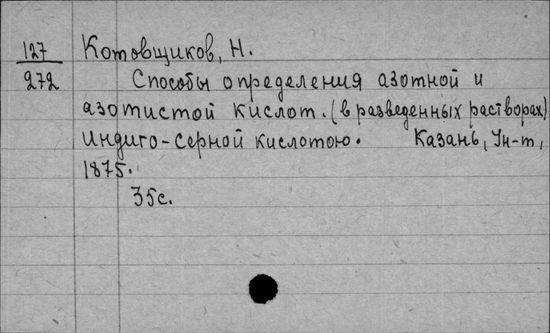 127 Котовщиков, Н.
272 Способы определения азотной и
азотистой кислот. (в разведенных растворах)
Индиго-серной кислотою. Казань, Ун-т,
1875.
35с.